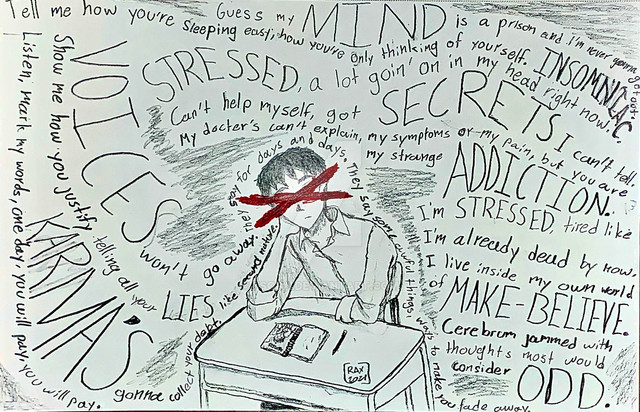 Tell me how you're sleeping easy, how you're only thinking of yourself.
Show me how you justify telling all your LIES like second nature.
Listen, mark my words, one day, you will pay, you will pay.
KARMA'S gonna collect your debt.
Guess my MIND is a prison and i'm never gonna get out.
STRESSED, a lot goin' on in my head right now.
INSOMNIAC.
Can't help myself, got SECRETS I can't tell
My docter's can't explain, my symptoms or my pain, but you are
my strange ADDICTION.
VOICES won't go away they stay for days and days. They say some awful things, ways to make you fade away.
I'm STRESSED, tired like
I'm already dead by now.
I live inside my own world
of MAKE-BELIEVE.
Cerebrum jammed with
thoughts most would
consider ODD.
RAX
2021